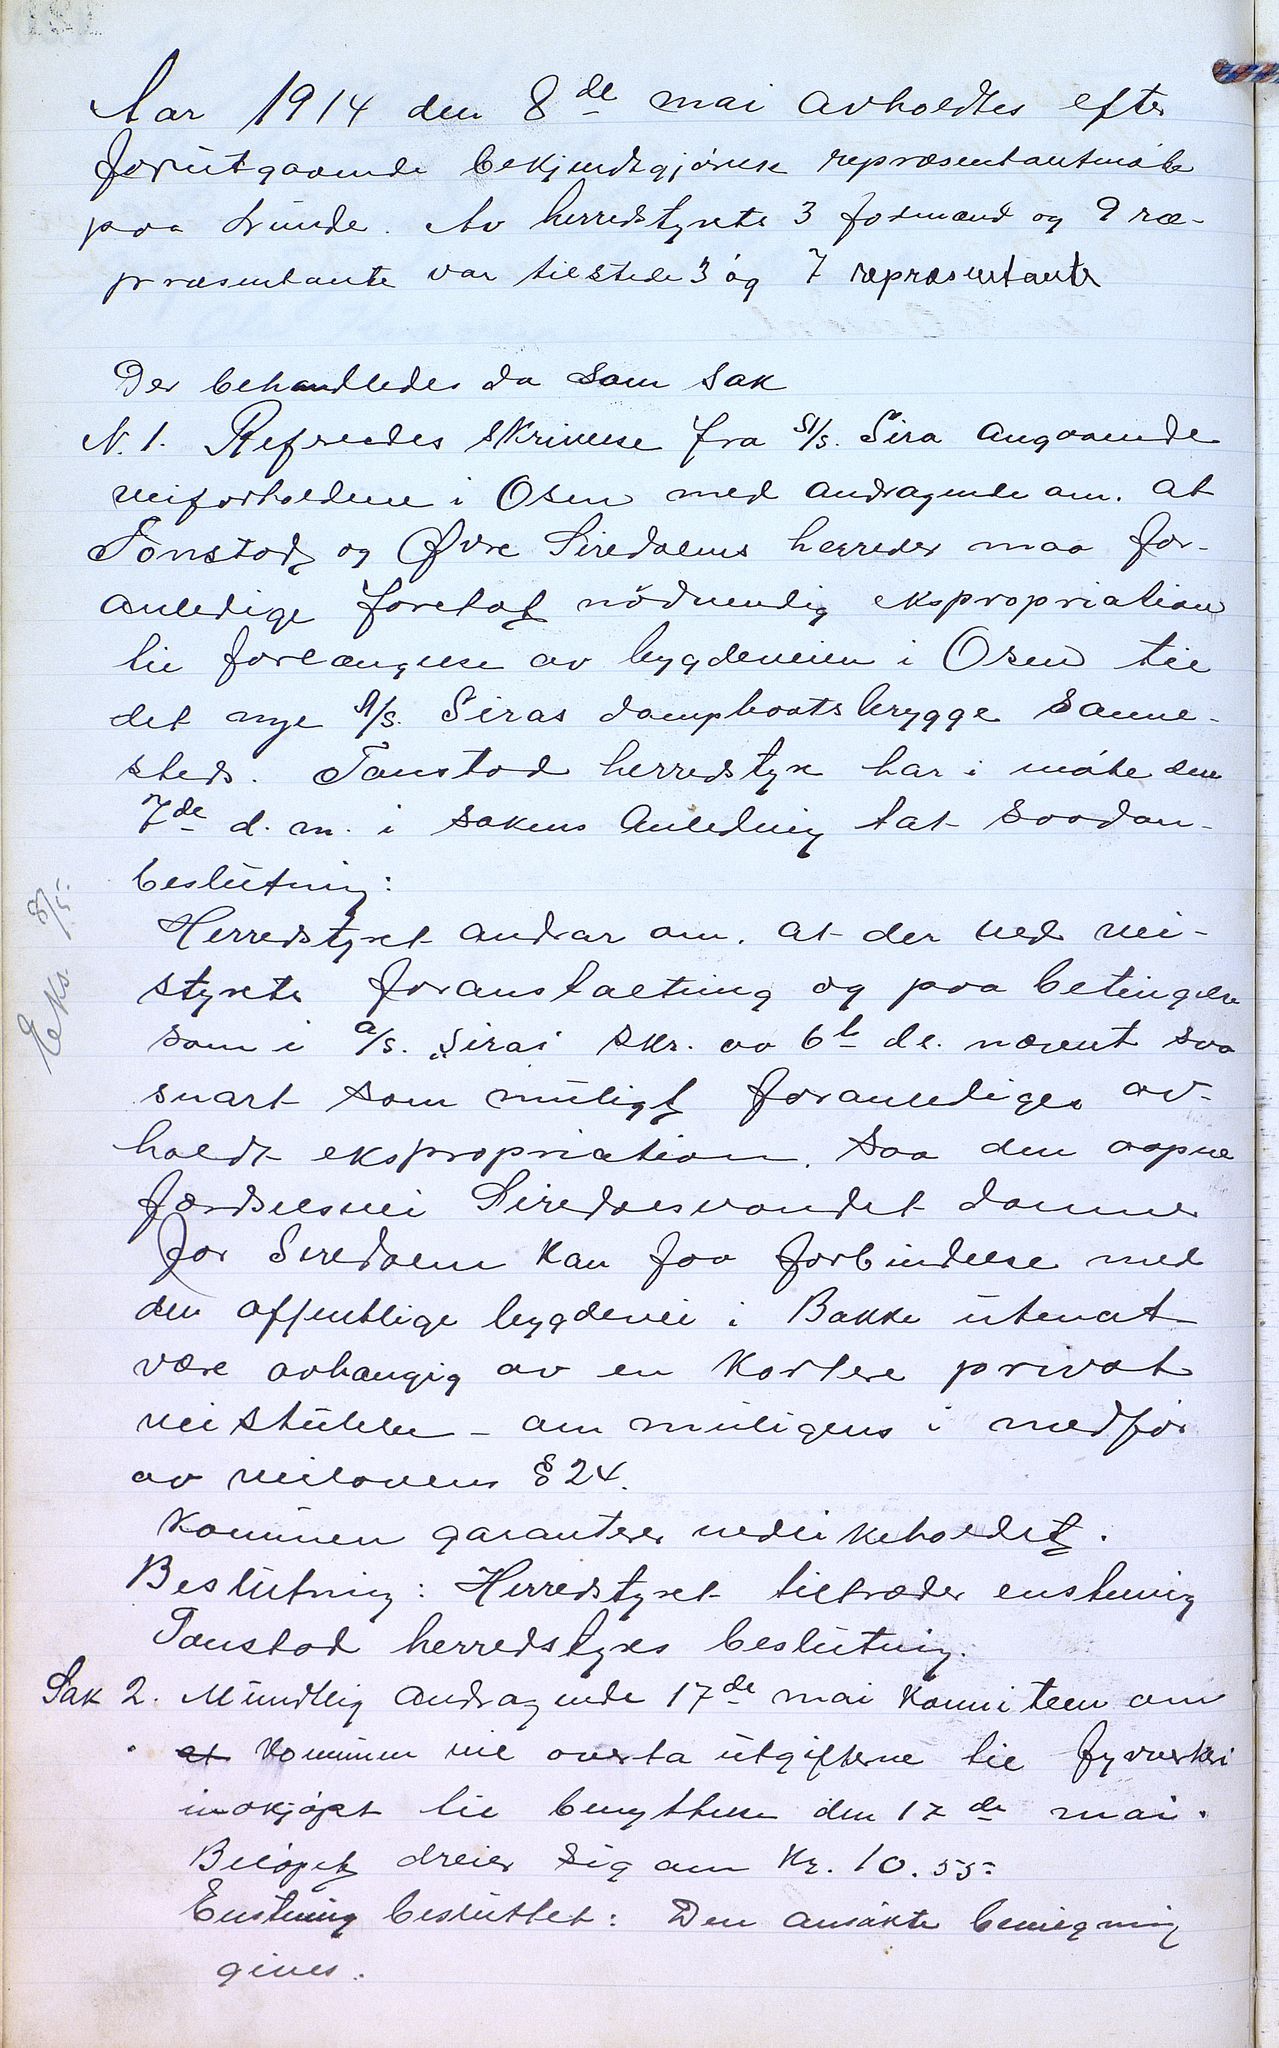 Aar 1914 den 8de mai avholdtes efter
forutgaaende bekjendtgjørelse repræsentantmøte
paa Lunde. Av herredstyrets 3 formænd og 9 ræ-
præsentante var tilstede 3 og 7 repræsentante
Der behandledes da som sak
N. 1. Refreredes skrivelse fra A/S. Sira angaaende
veiforholdene i Osen med andragende om. at
Tonstad og Øvre Siredalens herreder maa for-
anledige foretat nødvendig ekspropriation
til forlængelse av bygdeveien i Osen til
det nye A/S. Siras dampbaatsbrygge samme-
steds. Tonstad herredstyre har i møte den
7de d. m. i sakens Anledning tat saadan
beslutning:
Herredstyret andrar om. at der ved vei-
styrets foranstaltning og paa betingelse
som i a/s. "Siras" skr. av 6te ds. nævnt saa
snart som muligt foranlediges av-
holdt ekspropriation. Saa den aapne
færdselsvei Siredalsvandet danner
for Siredalen kan faa forbindelse med
den offentlige bygdevei i Bakke utenat
være avhangig av en kortere privat
veistubbe - om muligens i medfør
av veilovens § 24.
Kommunen garanterer vedlikeholdet.
Beslutning: Herredstyret tiltræder enstemig
Tonstad herredstyres beslutning.
Sak 2. Mundtlig andragende 17de mai komiteen om
at kommunen vil overta utgifterne til fyrverkeri
indkjøpt til benyttelse den 17de mai.
Beløpet dreier sig om Kr. 10.55-
Enstemig besluttet: Den ansøkte bevilgning
gives.
Eks 8/5.